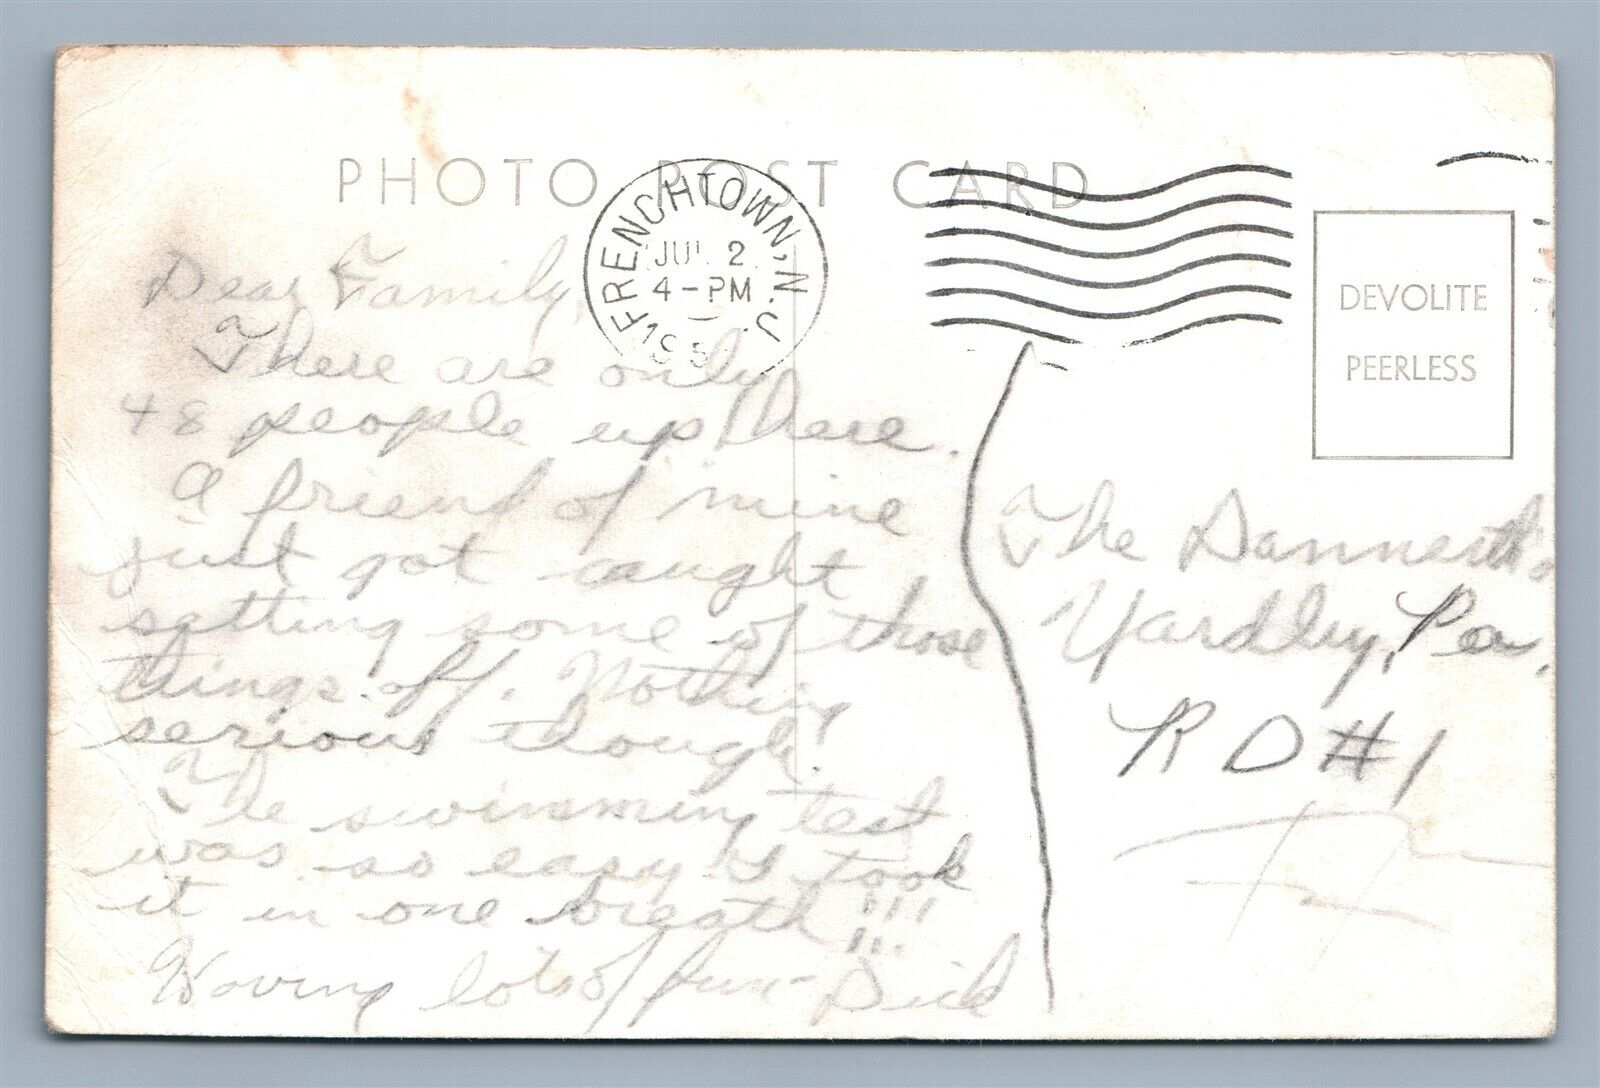 PHOTO POST CARD
FRENCHTOWN, N.J.
JUL 2
4-PM
195
DEVOLITE
PEERLESS
Dear Family,
There are only
48 people up here.
A friend of mine
just got caught
setting some of those
things off. Nothing
serious though.
The swimming test
was so easy I took
it in one breath!!!
Having lots of fun - Dick
The Dannerth's
Yardley, Pa.
R D #1